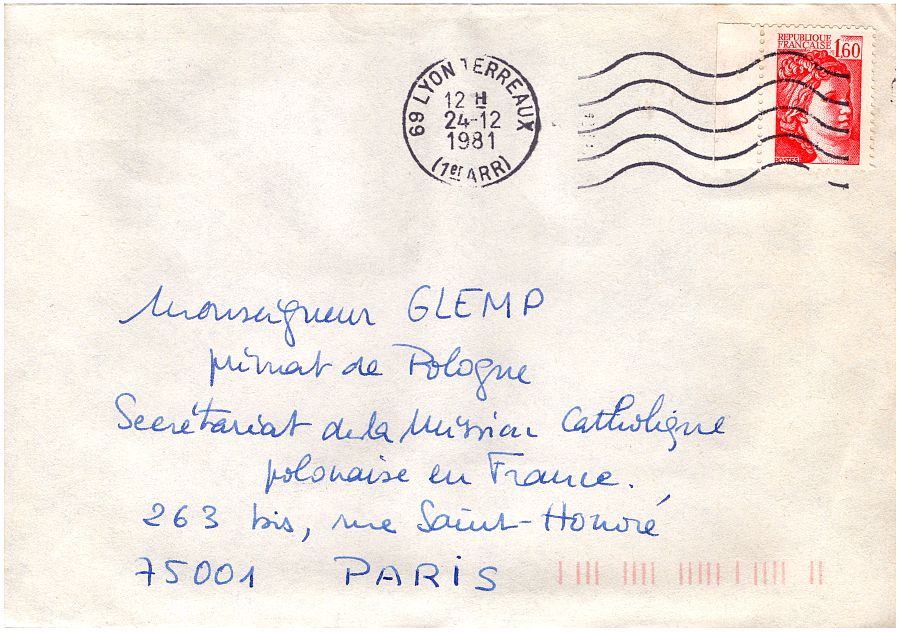 RÉPUBLIQUE
FRANÇAISE 1,60
POSTES
69 LYON TERREAUX
12 H
24-12
1981
(1er ARR)
Monseigneur GLEMP
primat de Pologne
Secrétariat de la Mission Catholique
polonaise en France.
263 bis, rue Saint-Honoré
75001 PARIS